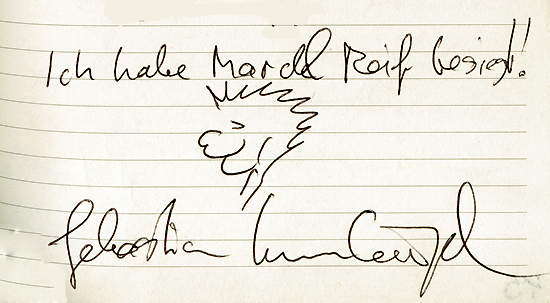 Ich habe Marcel Reif besiegt!!
Sebastian